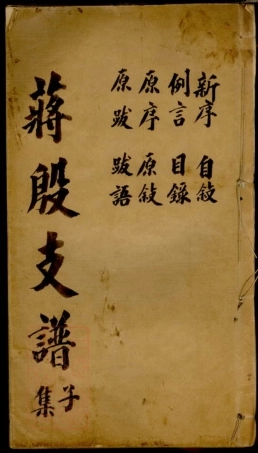 新序 自敍
例言 目錄
原序 原敍
原跋 跋語
蔣殷支譜
子集